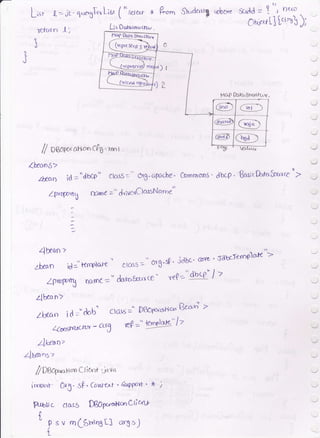 List l = jt.queryForList ("select * from Students where StuId = ?", new
Object[]{arg});
return l;
}
}
List Data structure.
Map Data Structure
0
1
2
Map Data structure.
(sno)
(101)
(sname)
(raja)
(sadd)
(hyd)
keys
values
// DBOperationCfg.xml
<beans>
<bean id="dbcp" class="org.apache.commons.dbcp.BasicDataSource">
<property name="driverClassName"
</bean>
<bean id="template" class="org.sf.jdbc.core.JdbcTemplate">
<property name="dataSource" ref="dbcp"/>
</bean>
<bean id="dob" class="DBOperationBean">
<constructor-arg ref="template"/>
</bean>
</beans>
// DBOperationClient.java
import org.sf.context.support.*;
Public class DBOperationClient
{
p s v m(String[] args)
{